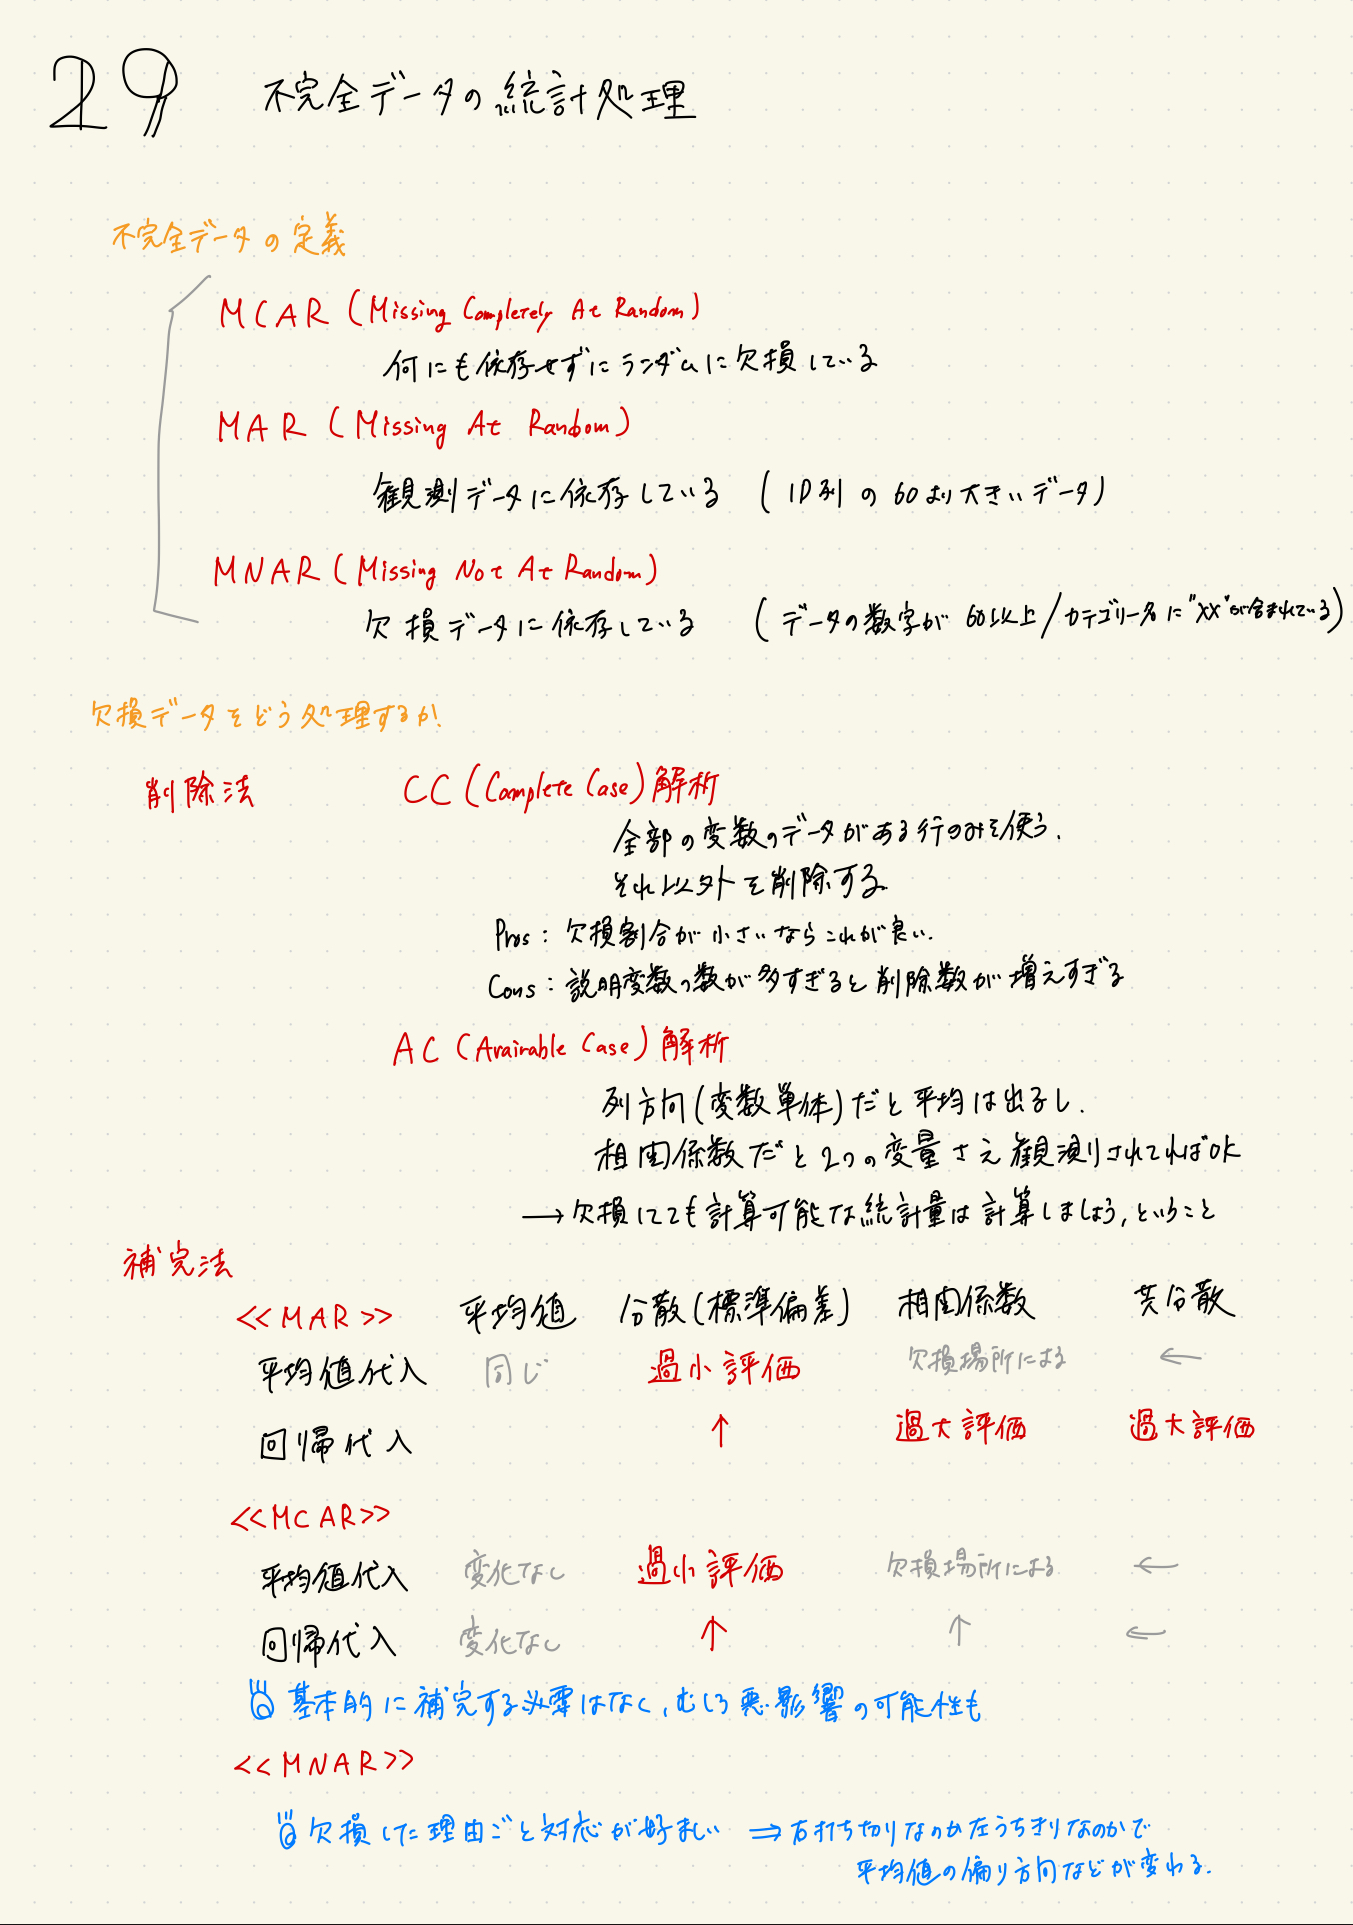 29 不完全データの統計処理
不完全データの定義
MCAR (Missing Completely At Random)
何にも依存せずにランダムに欠損している
MAR (Missing At Random)
観測データに依存している (ID列の60より大きいデータ)
MNAR (Missing Not At Random)
欠損データに依存している (データの数字が60以上/カテゴリー名に"XX"が含まれている)
欠損データをどう処理するか.
削除法 CC (Complete Case) 解析
全部の変数のデータがある行のみを使う.
それ以外を削除する.
Pros: 欠損割合が小さいならこれが良い.
Cons: 説明変数の数が多すぎると削除数が増えすぎる
AC (Avairable Case) 解析
列方向(変数単体)だと平均は出るし.
相関係数だと2つの変量さえ観測されてればOK
→欠損してても計算可能な統計量は計算しましょう,ということ
補完法
<<MAR>> 平均値 分散(標準偏差) 相関係数 共分散
平均値代入 同じ 過小評価 欠損場所による ←
回帰代入 ↑ 過大評価 過大評価
<<MCAR>>
平均値代入 変化なし 過小評価 欠損場所による ←
回帰代入 変化なし ↑ ↑ ←
基本的に補完する必要はなく,むしろ悪影響の可能性も
<<MNAR>>
欠損した理由ごと対応が好ましい ⇒ 右打ち切りなのか左うちきりなのかで
平均値の偏り方向などが変わる.